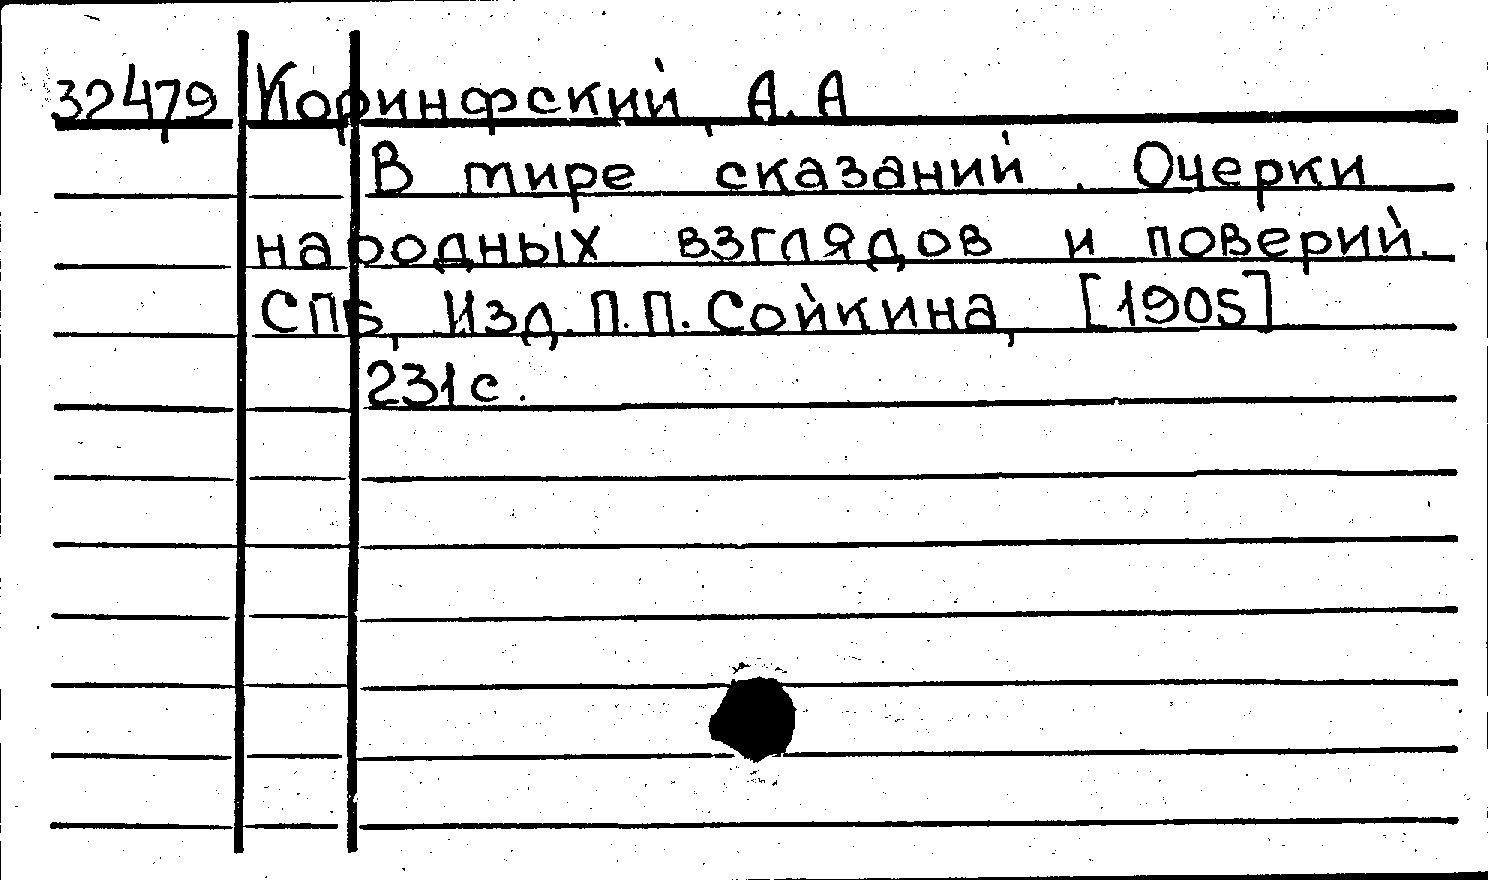 32479 Коринфский, А.А
В мире сказаний. Очерки
народных взглядов и поверий.
СПб, Изд. П.П. Сойкина, [1905]
231с.